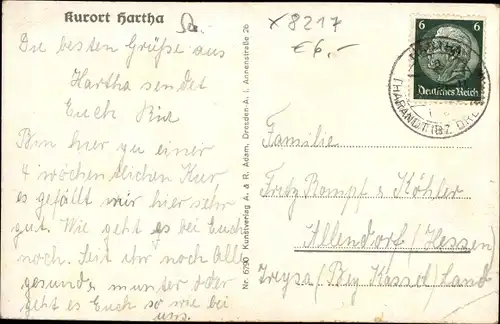 Kurort Hartha
Die besten Grüße aus
Hartha sendet
Euch
Bin hier zu einer
4 wöchentlichen Kur
es gefällt mir hier sehr
gut. Wie geht es bei Euch
noch. Seit ihr noch Alle
gesund, munter oder
geht es Euch so wie bei
uns.
Nr. 6290 Kunstverlag A. & R. Adam, Dresden-A. 1, Annenstraße 26
x 8217
€ 6,-
6
Deutsches Reich
HARTHA
THARANDT (BZ. DRE
Familie
Fritz Rompf & Köhler
Allendorf (Hessen)
Treysa (Bez Kassel) Land